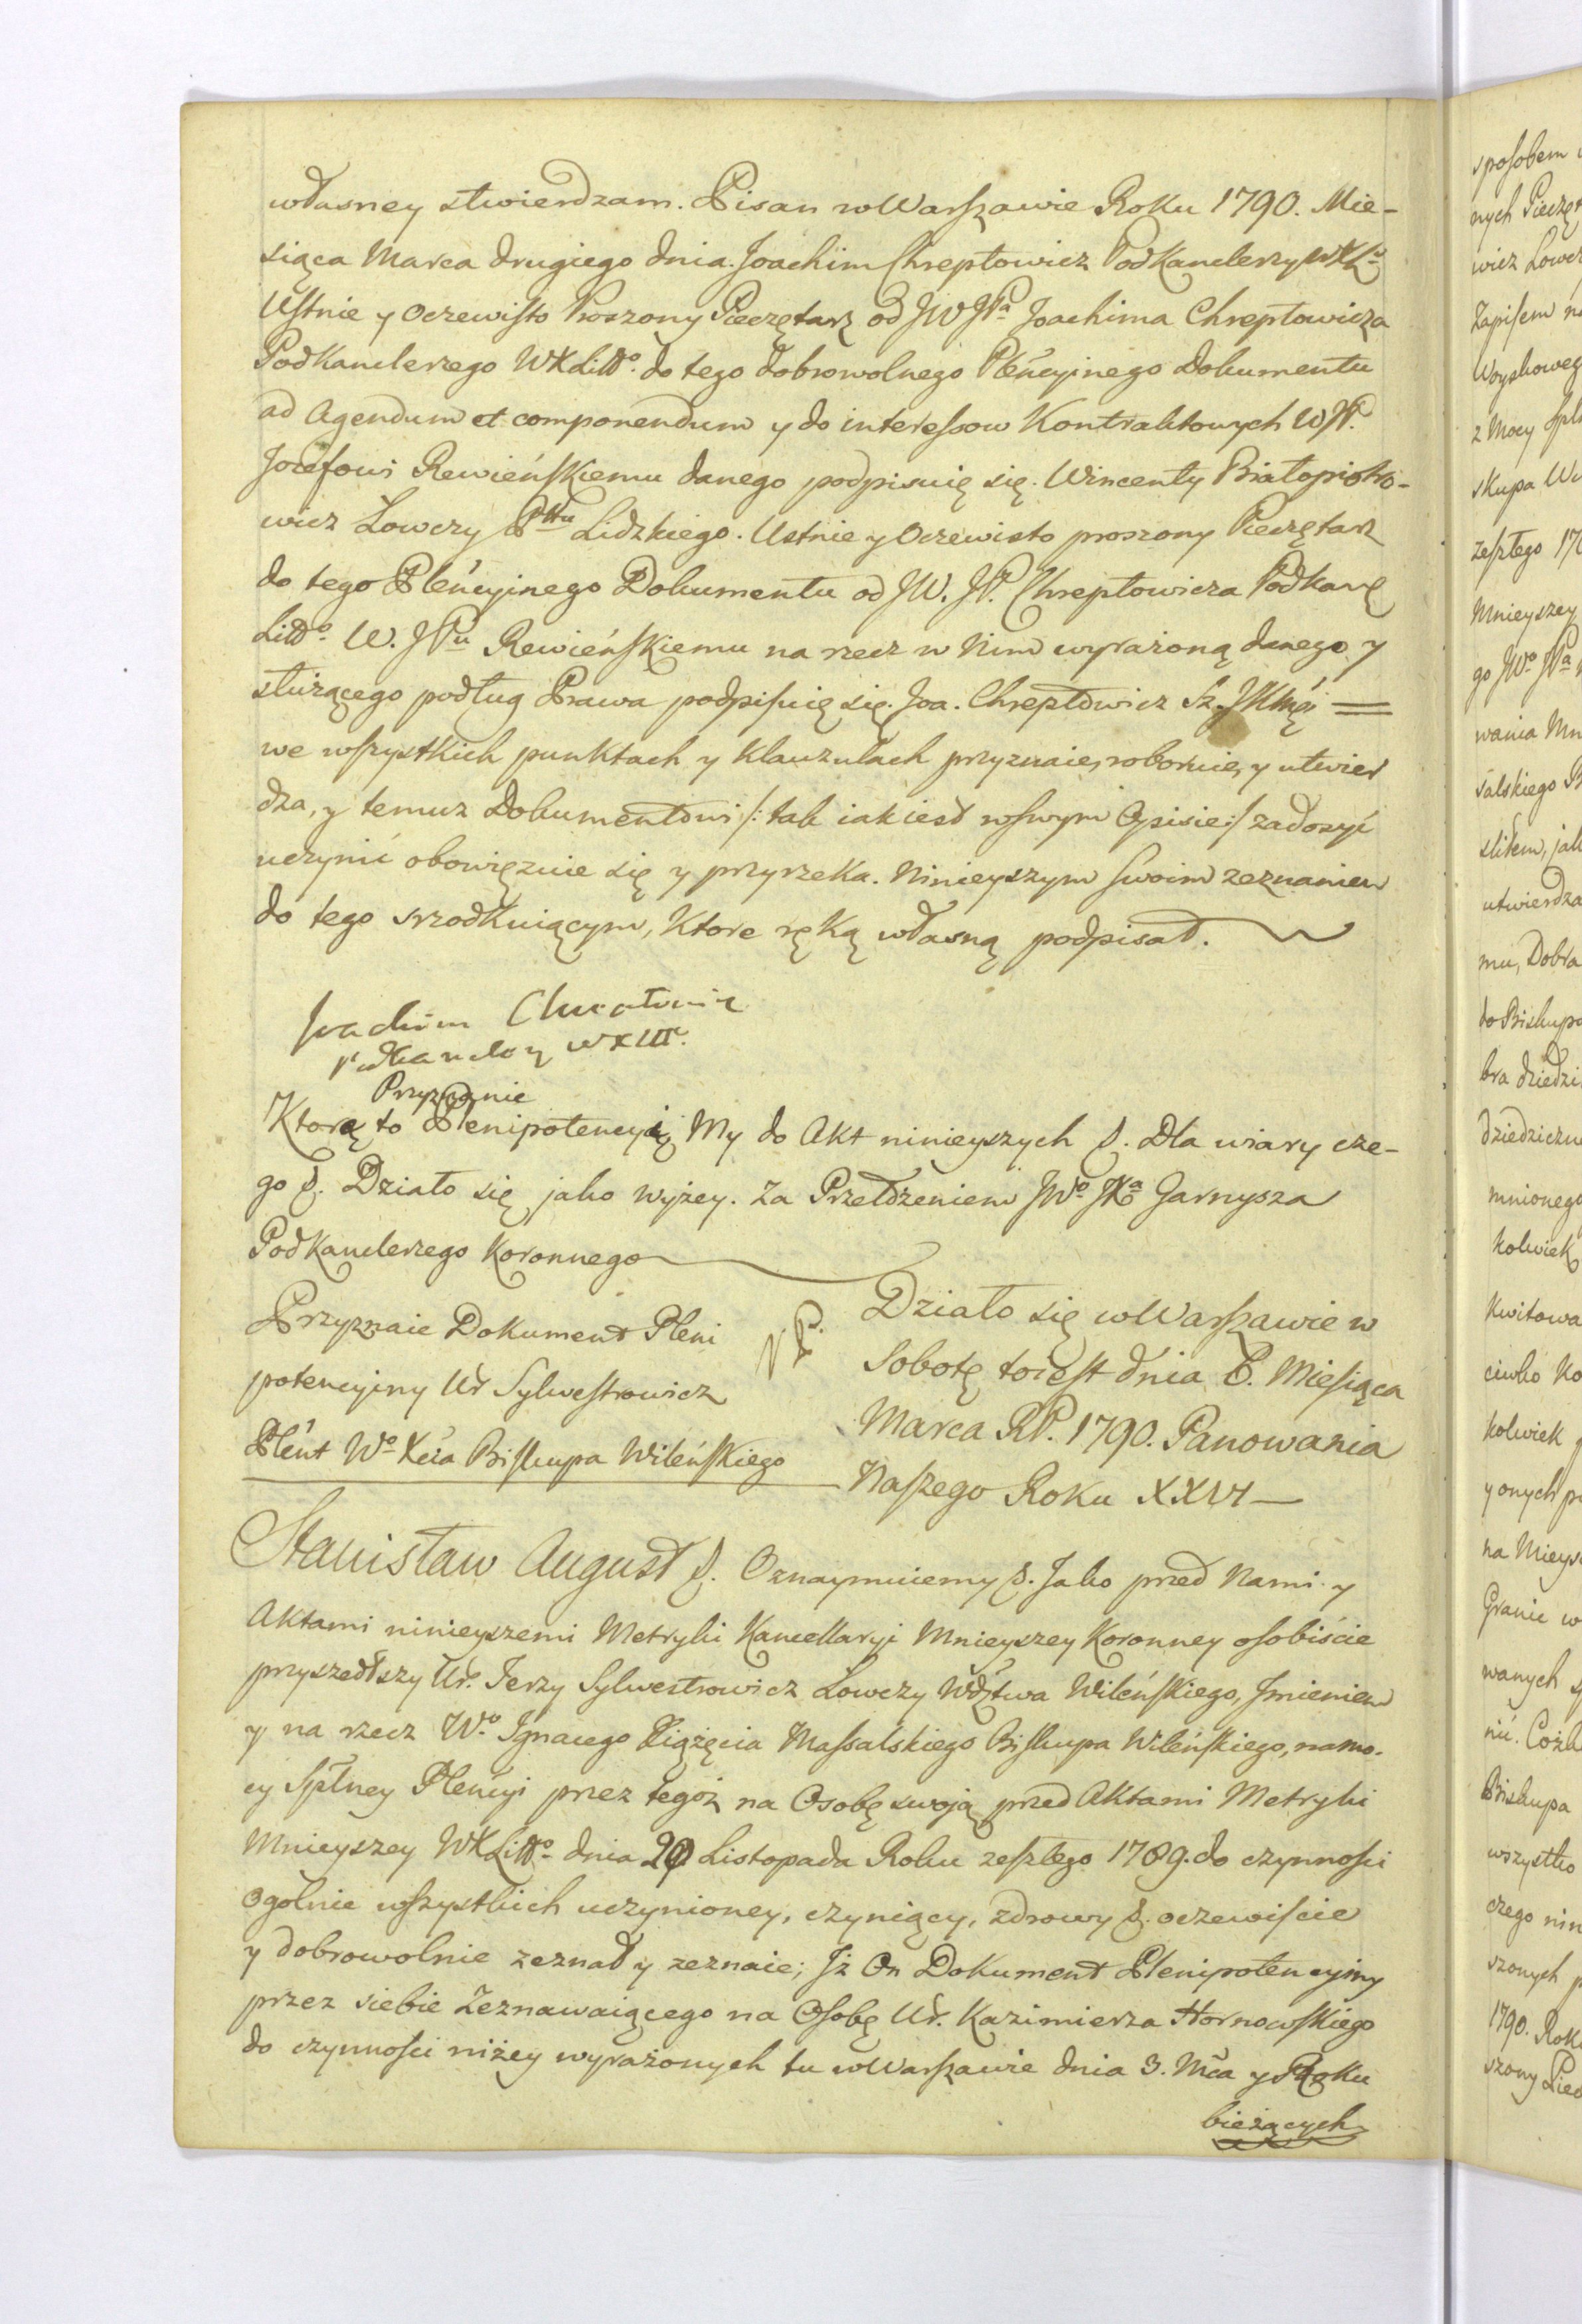 własney stwierdzam. Pisan w Warszawie Roku 1790. Mie-
siąca Marca drugiego dnia. Joachim Chreptowicz Podkanclerzy WXLo
Ustnie y Oczewisto Proszony Pieczętarz od JWJPa Joachima Chreptowicza
Podkanclerzego WXLitto. do tego dobrowolnego Pleńcyinego Dokumentu
ad Agendum et componendum y do interessow Kontraktowych WJP.
Jozefowi Rewieńskiemu danego podpisuię się. Wincenty Białopiotro-
wicz Łowczy Pttu Lidzkiego. Ustnie y Oczewisto proszony Pieczętarz
do tego Pleńcyinego Dokumentu od JW. JP. Chreptowicza Podkan
Litto. W. JPu Rewieńskiemu na rzecz w Nim wyrażoną danego y
służącego podług Prawa podpisuię się. Joa. Chreptowicz Sz. JKMći =
we wszystkich punktach y Klauzulach przyznaie, roboruie, y utwier
dza, y temuż Dokumentowi /: tak iak iest w swym Opisie :/ zadosyć
uczynić obowięzuie się y przyrzeka. Ninieyszym swoim zeznaniem
do tego srzodkuiącym, Ktore ręką własną podpisał.
Joachim Chreptowicz
Podkanclerzy WXLitt.
Przyznanie
Ktore to Plenipotencyi My do Akt ninieyszych &. Dla wiary cze-
go &. Działo się jako wyżey. Za Przełożeniem JWo JXa Garnysza
Podkanclerzego Koronnego
Przyznaie Dokument Pleni
potencyiny Ur Sylwestrowicz
Pleńt Wo Xcia Biskupa Wileńskiego
N. P.
Działo się w Warszawie w
Sobotę toiest dnia 6. Miesiąca
Marca RP. 1790. Panowania
Naszego Roku XXVI
Stanisław August &. Oznaymuiemy &. Jako przed Nami y
Aktami ninieyszemi Metryki Kancellaryi Mnieyszey Koronney osobiście
przyszedłszy Ur. Jerzy Sylwestrowicz Łowczy Wdztwa Wileńskiego, Jmieniem
y na rzecz Wo. Jgnacego Xiążęcia Massalskiego Biskupa Wileńskiego, na mo-
cy Spłney Pleńcyi przez tegoż na Osobę swoją przed Aktami Metryki
Mnieyszey WXLitto dnia Listopada Roku zeszłego 1789. do czynności
Ogolnie wszystkich uczynioney, czyniący, zdrowy &. oczewiście
y dobrowolnie zeznał y zeznaie; Jż On Dokument Plenipotencyiny
przez siebie Zeznawaiącego na Osobę Ur. Kazimierza Hornowskiego
do czynności niżey wyrażonych tu w Warszawie dnia 3. Mca y Roku
bieżących